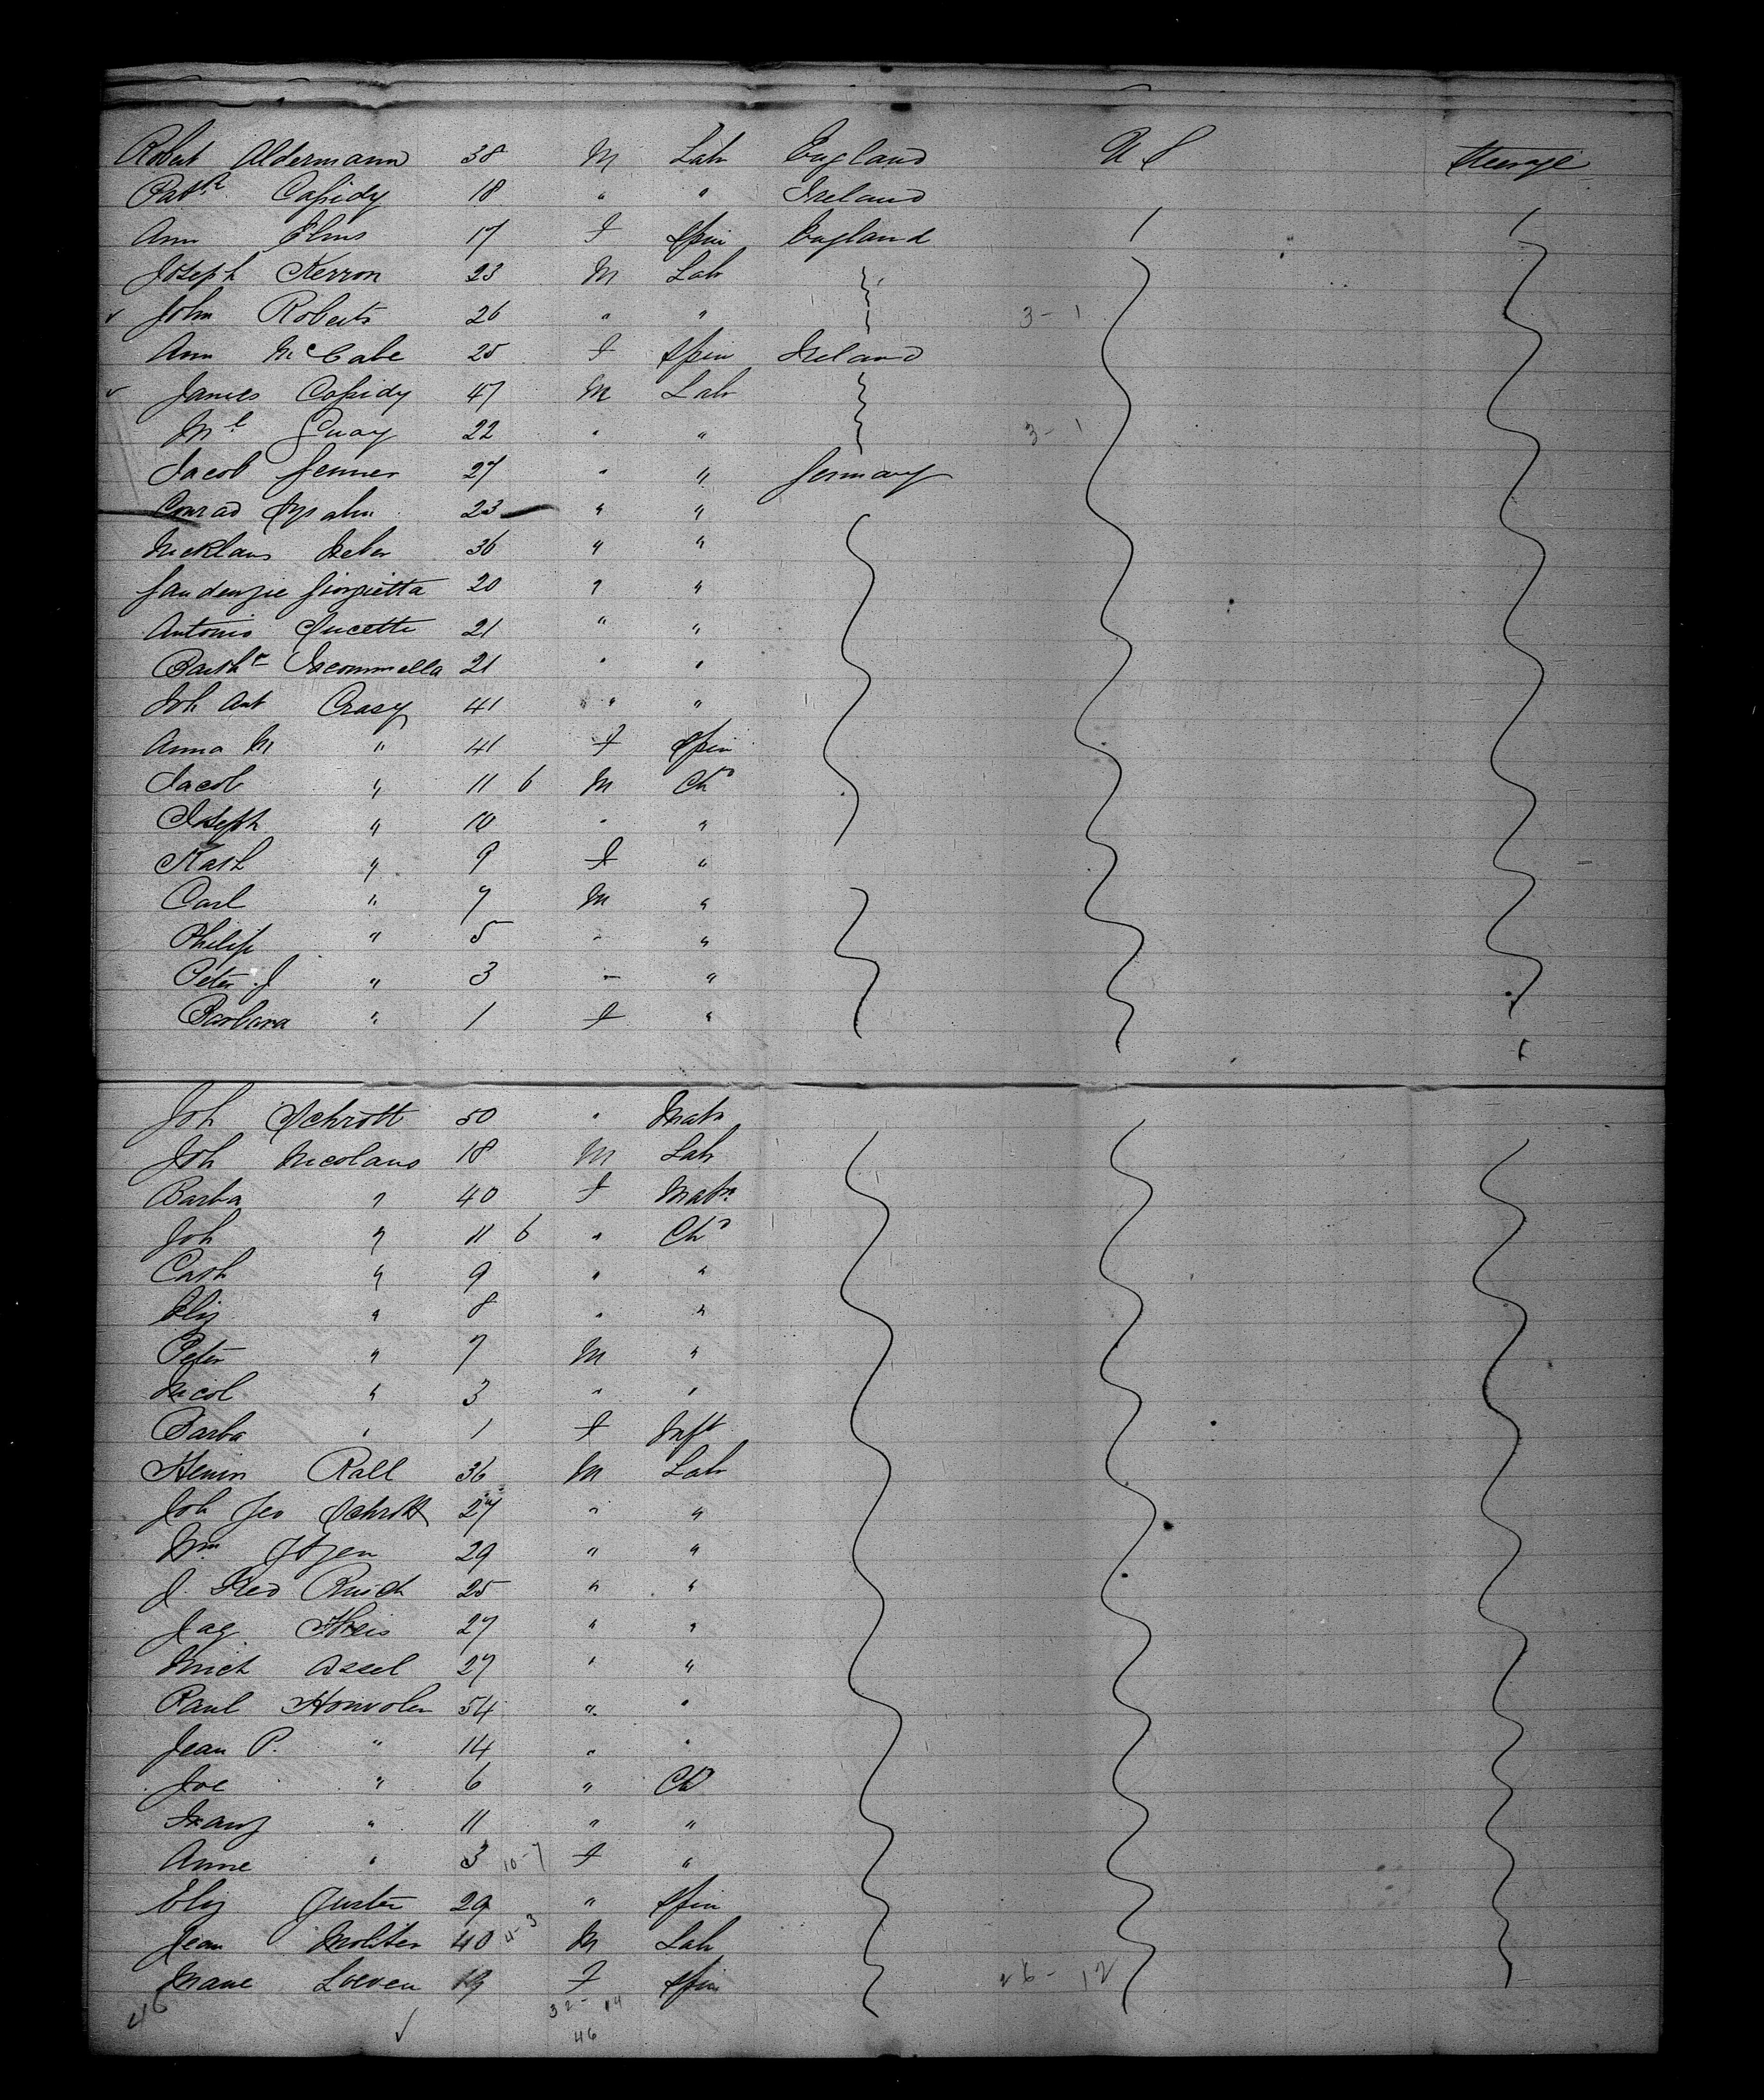 Robert Aldermann 38 M Lab England U S Steerage
Patk Cassidy 18 " " Ireland
Ann Elms 17 F Spin England
Joseph Kerron 23 M Lab
John Roberts 26 " " 3 - 1
Ann McCabe 25 F Spin Ireland
James Cassidy 47 M Lab
Ml Quay 22 " " 3 - 1
Jacob Jenner 27 " " Germany
Conrad 23 " "
Nicklaus Weber 36 " "
20 " "
Antonio 21 " "
Barthr 21 " "
Joh Ant Crasy 41 " "
Anna M " 41 F Spin
Jacob " 11 6 M Chd
Joseph " 10 " "
Kath " 9 F "
Carl " 7 M "
Philip " 5 " "
Peter J " 3 " "
Barbara " 1 F "
Joh Schrott 50 " Matn
Joh Nicolaus 18 M Lab
Barba " 40 F Matn
Joh " 11 6 " Chd
Cath " 9 " "
Eliz " 8 " "
Peter " 7 M "
Nicol " 3 " "
Barba " 1 F Inft
Henin Rall 36 M Lab
Joh Geo Schrott 27 " "
Wm 29 " "
J. Fred 25 " "
Jac Theis 27 " "
Mich Assel 27 " "
Paul Honvolen 54 " "
Jean P. " 14 " "
Joe " 6 " Chd
Franz " 11 " "
Anne " 3 10-7 F "
Eliz Juster 29 " Spin
Jean Moliter 40 4-3 M Lab
Marie Loeven 19 F Spin 26 - 12
46 32 - 14
46